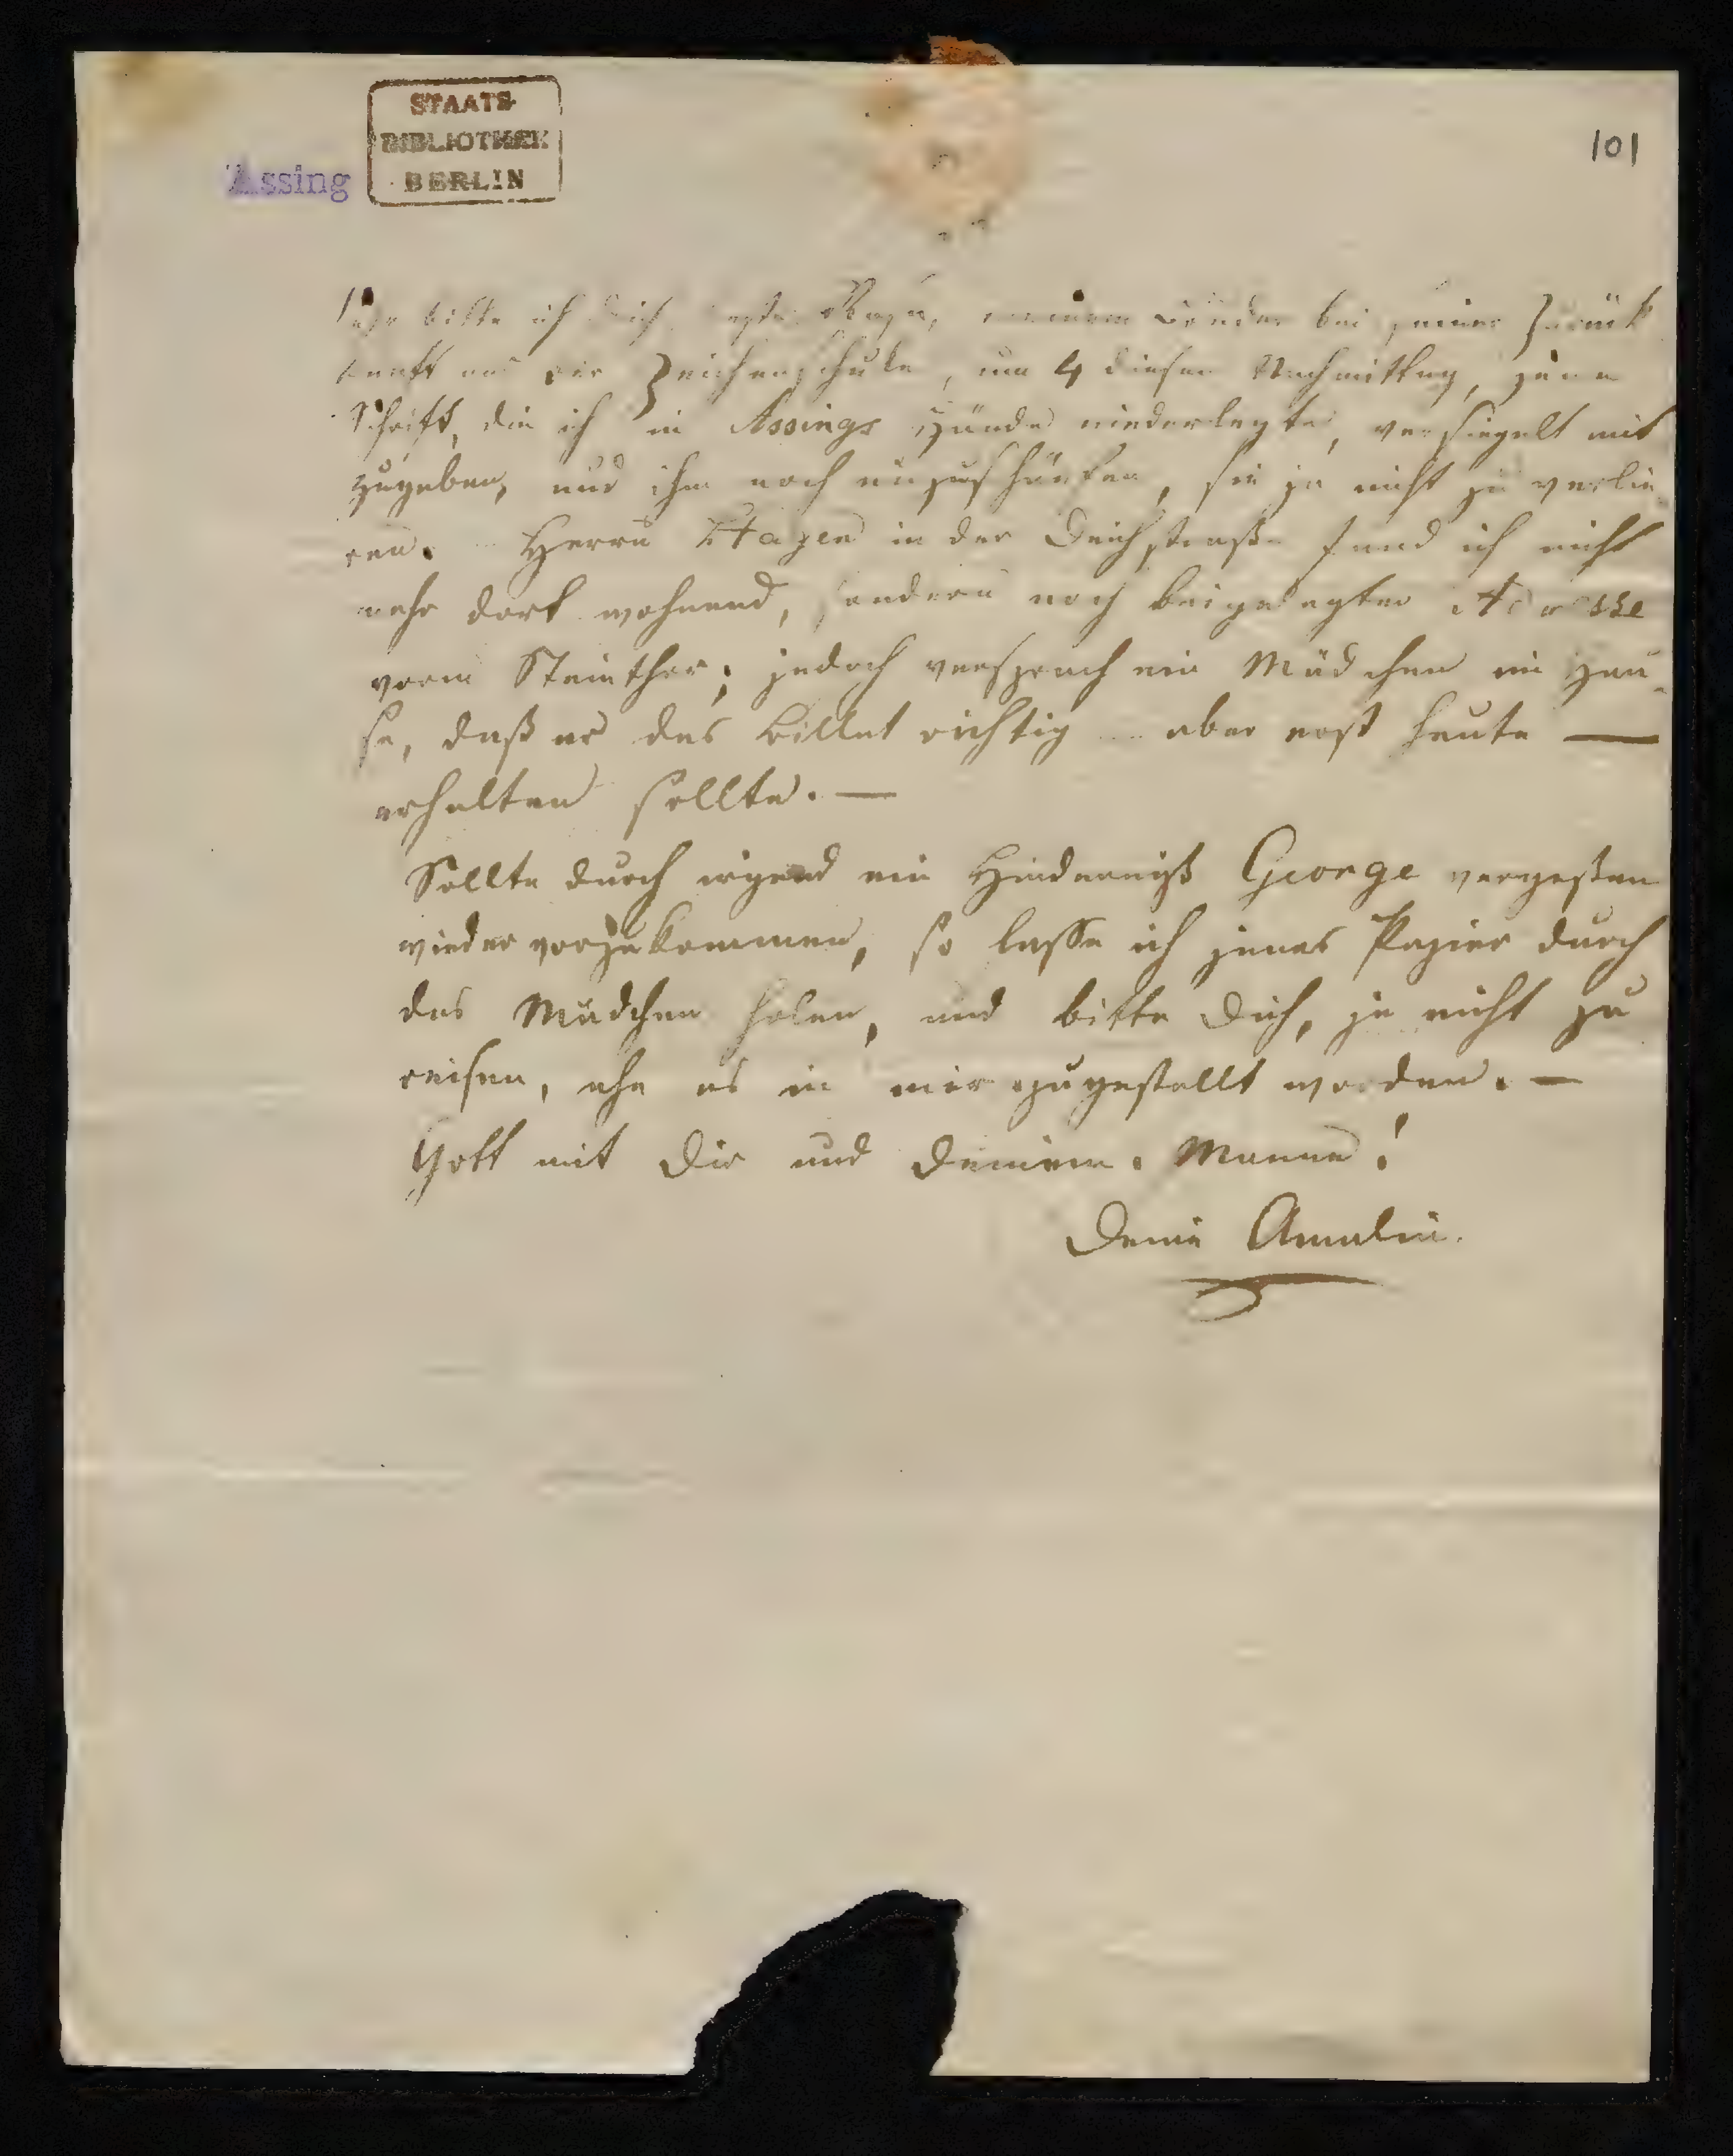 STAATS-
BIBLIOTHEK
BERLIN
Assing
101
Sehr bitte ich Dich, beste Rosa, meinem Bruder bei seiner Zurück
kunft aus der Zeichenschule, um 4 diesen Nachmittag, jene
Schrift, die ich in Assings Hände niederlegte, versiegelt mit
zugeben, und ihm noch einzuschärfen, sie ja nicht zu verlie-
ren. Herrn in der Deichstraße fand ich nicht
mehr dort wohnend, sondern nach beigelegter Adresse
vorm Steinthor; jedoch versprach ein Mädchen im Hau-
se, daß er das Billet richtig aber erst heute —
erhalten sollte. —
Sollte durch irgend ein Hinderniß George vergeßen
wieder vorzukommen, so lasse ich jenes Papier durch
das Mädchen holen, und bitte Dich, ja nicht zu
reisen, ehe es mir zugestellt worden. —
Gott mit Dir und Deinem Manne!
Deine Amalie.